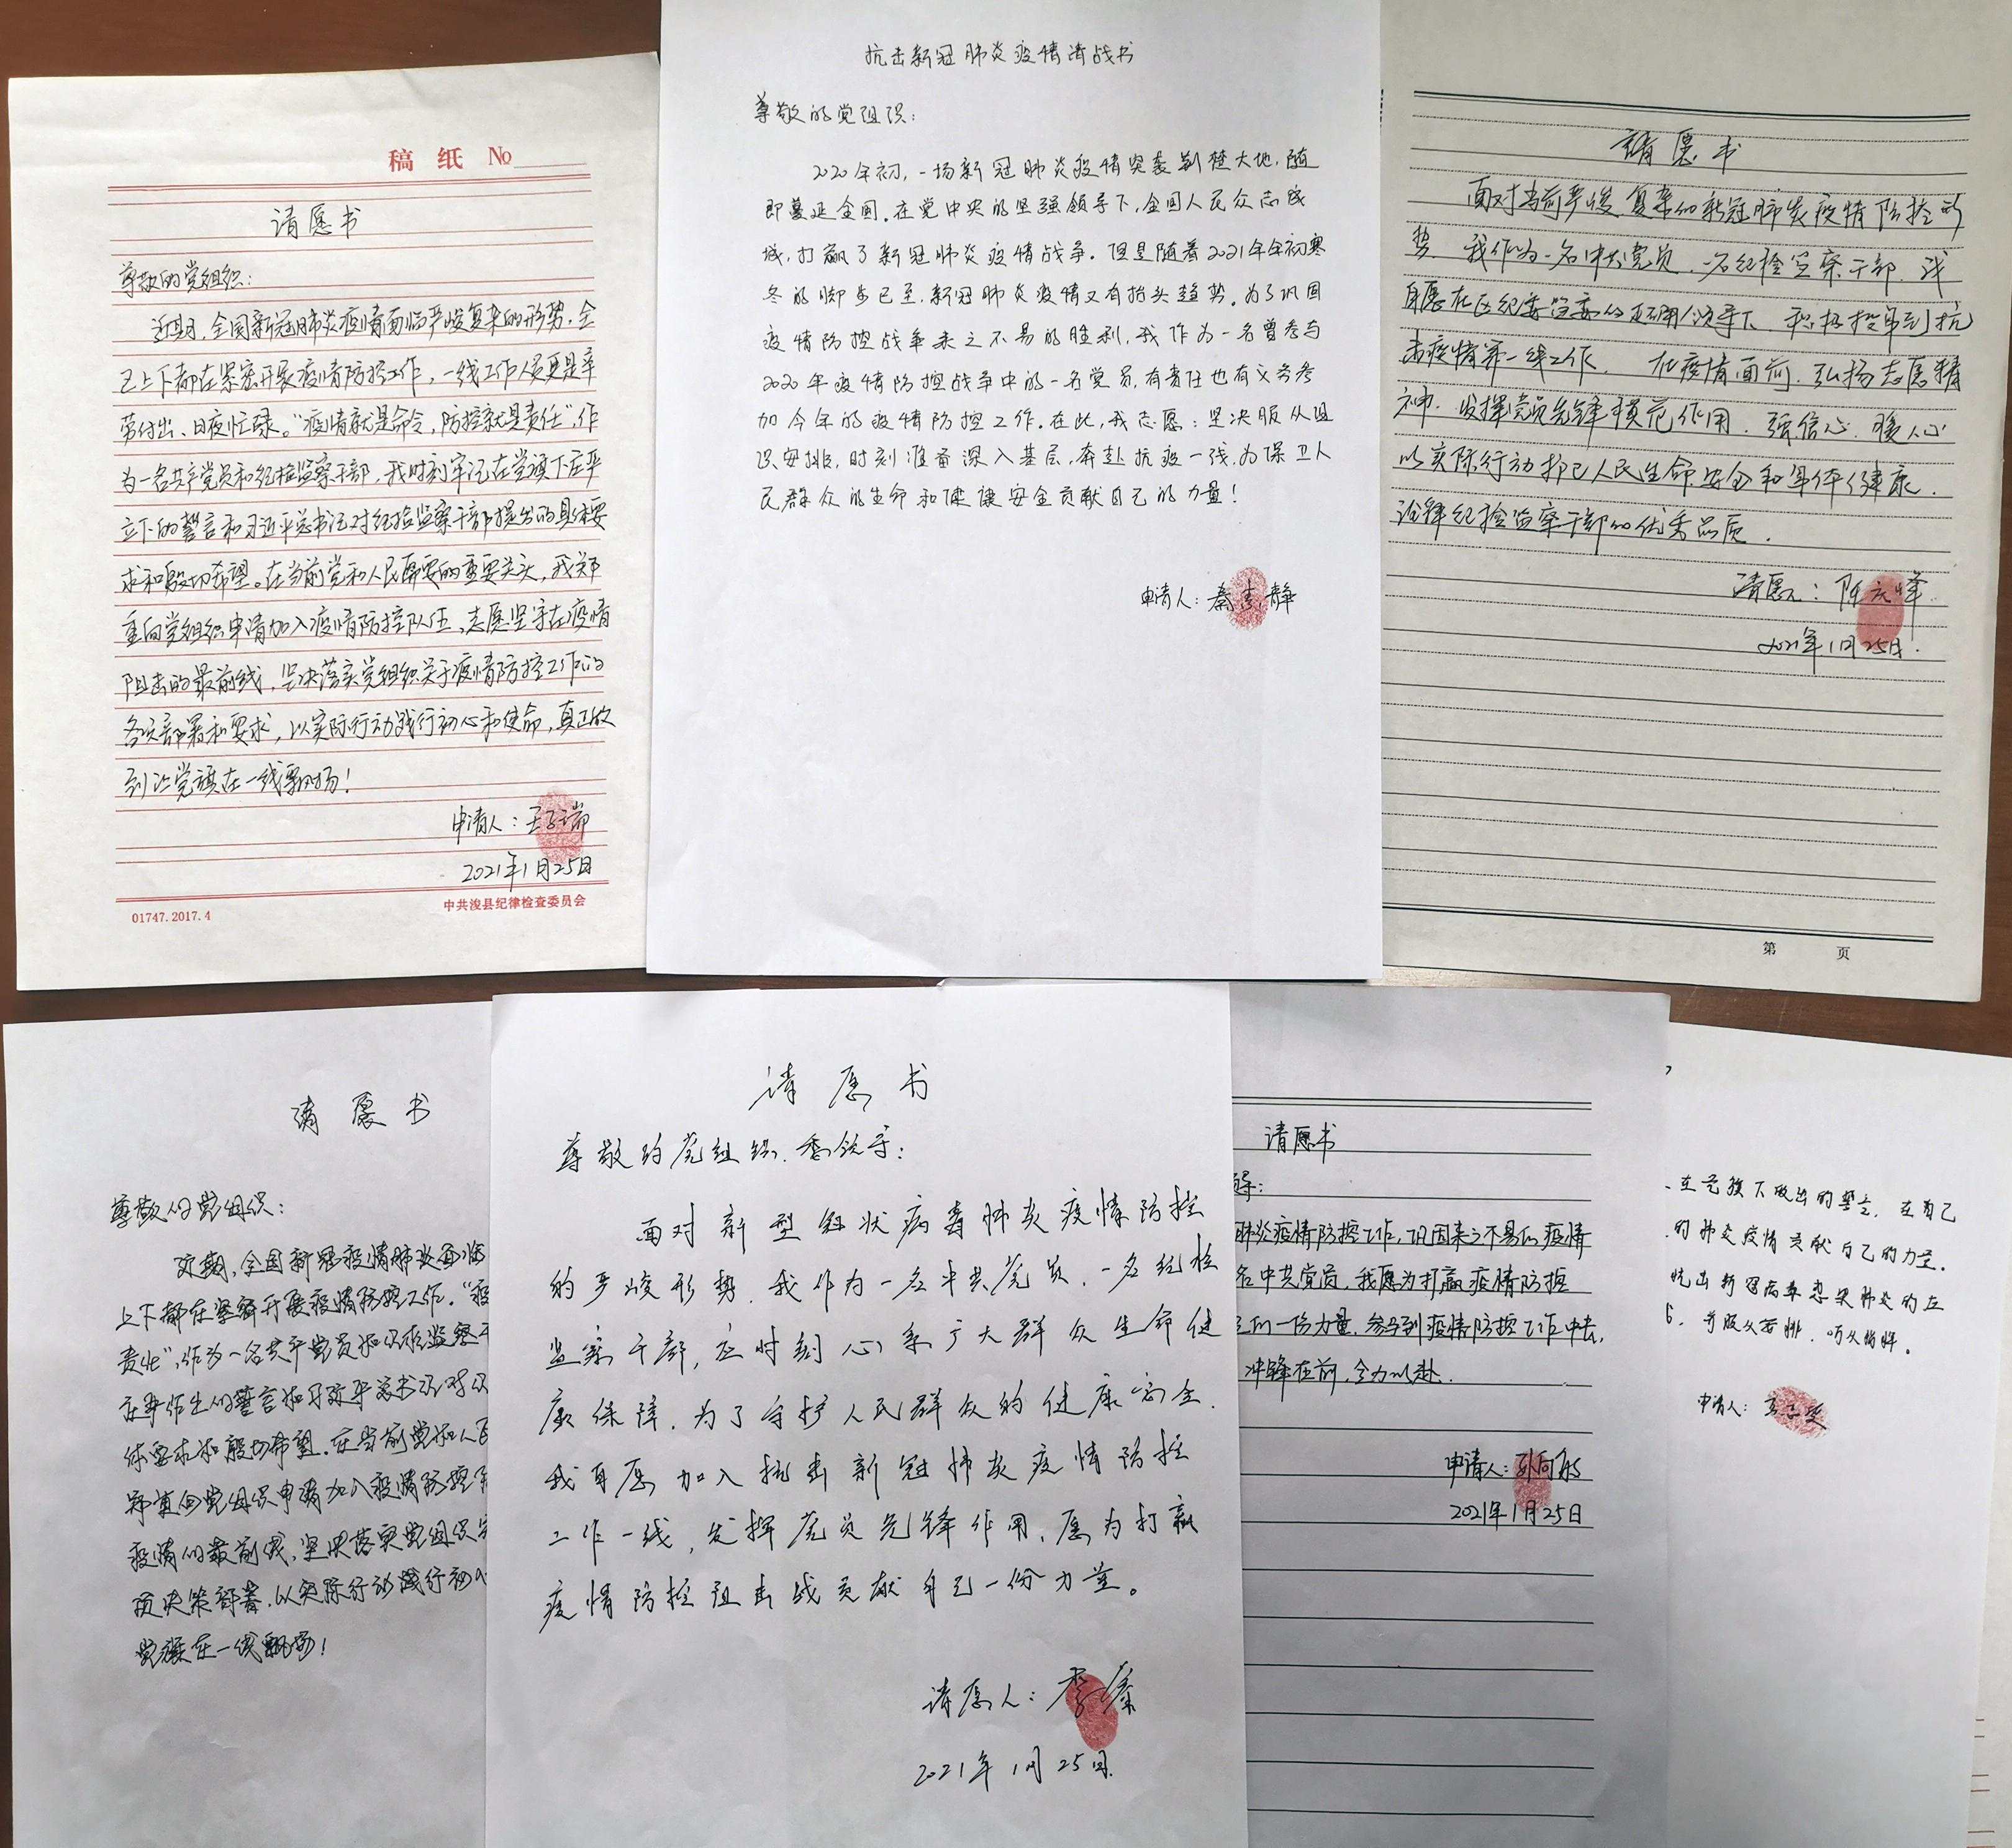 稿 纸 No
请愿书
尊敬的党组织：
近期，全国新冠肺炎疫情面临严峻复杂的形势，全
已上下都在紧密开展疫情防控工作，一线工作人员更是辛
劳付出、日夜忙碌。“疫情就是命令，防控就是责任”，作
为一名共产党员和纪检监察干部，我时刻牢记在党旗下庄严
立下的誓言和习近平总书记对纪检监察干部提出的具体要
求和殷切希望。在当前党和人民需要的重要关头，我郑
重向党组织申请加入疫情防控队伍，志愿坚守在疫情
阻击的最前线，坚决落实党组织关于疫情防控工作的
各项部署和要求，以实际行动践行初心和使命，真正做
到让党旗在一线飘扬！
申请人：王子瑞
2021年1月25日
01747.2017.4
中共浚县纪律检查委员会
抗击新冠肺炎疫情请战书
尊敬的党组织：
2020年初，一场新冠肺炎疫情突袭荆楚大地，随
即蔓延全国。在党中央的坚强领导下，全国人民众志成
城，打赢了新冠肺炎疫情战争。但是随着2021年年初寒
冬的脚步已至，新冠肺炎疫情又有抬头趋势。为了巩固
疫情防控战争来之不易的胜利，我作为一名曾参与
2020年疫情防控战争中的一名党员，有责任也有义务参
加今年的疫情防控工作。在此，我志愿：坚决服从组
织安排，时刻准备深入基层，奔赴抗疫一线，为保卫人
民群众的生命和健康安全贡献自己的力量！
申请人：秦素静
请愿书
面对当前严峻复杂的新冠肺炎疫情防控形
势，我作为一名中共党员，一名纪检监察干部，我
自愿在区纪委监委的正确领导下，积极投身到抗
击疫情第一线工作。在疫情面前，弘扬志愿精
神，发挥党员先锋模范作用，强信心，暖人心
以实际行动护卫人民生命安全和身体健康，
诠释纪检监察干部的优秀品质。
请愿人：陈
2021年1月25日.
第 页
请愿书
尊敬的党组织：
近期，全国新冠疫情肺炎面临
上下都在紧密开展疫情防控工作。“疫
责任”，作为一名共产党员和纪检监察干
庄严作出的誓言和习近平总书记对纪
体要求和殷切希望。在当前党和人民
郑重向党组织申请加入疫情防控队
疫情的最前线，坚决落实党组织
项决策部署，以实际行动践行初心
党旗在一线飘扬！
请愿书
尊敬的党组织、委领导：
面对新型冠状病毒肺炎疫情防控
的严峻形势，我作为一名中共党员，一名纪检
监察干部，应时刻心系广大群众生命健
康保障，为了守护人民群众的健康安全，
我自愿加入抗击新冠肺炎疫情防控
工作一线，发挥党员先锋作用，愿为打赢
疫情防控阻击战贡献自己一份力量。
请愿人：李蓁
2021年1月25日.
请愿书
导：
肺炎疫情防控工作，巩固来之不易的疫情
名中共党员，我愿为打赢疫情防控
己的一份力量，参与到疫情防控工作中去，
冲锋在前，全力以赴.
申请人：孙向
2021年1月25日
在党旗下做出的誓言，在自己
的肺炎疫情贡献自己的力量。
新冠病毒感染肺炎的
服从安排，听从指挥。
申请人：